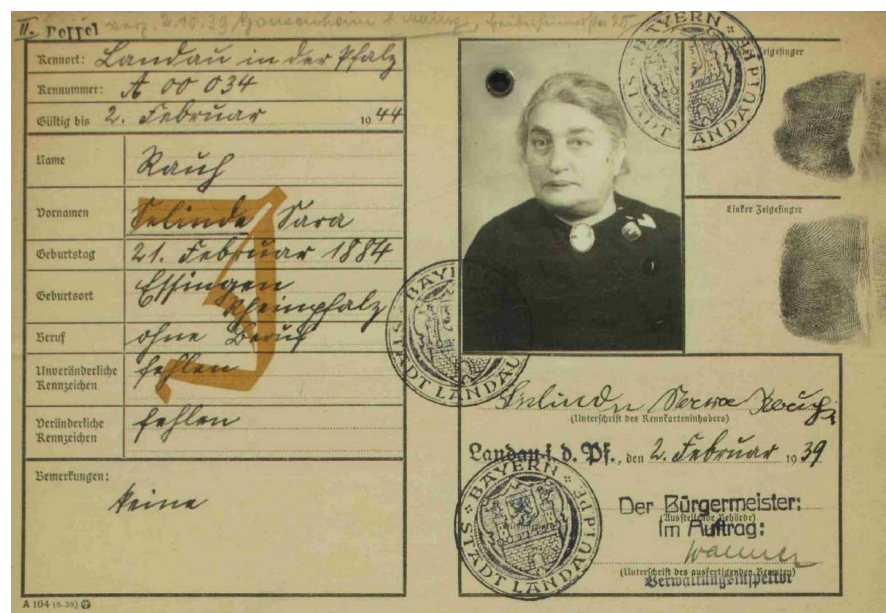 II. verz. 2.10.39 Gonsenheim b. Mainz,
Kennort: Landau in der Pfalz
Kennummer: A 00 034
Gültig bis 2. Februar 1944
Name Rauh
Vornamen Selinde Sara
Geburtstag 21. Februar 1884
Geburtsort Essingen
Rheinpfalz
Beruf ohne Beruf
Unveränderliche
Kennzeichen fehlen
Veränderliche
Kennzeichen fehlen
Bemerkungen:
keine
A 104 (8.38)
J
BAYERN
STADT LANDAU i.d.Pf.
Zeigefinger
Linker Zeigefinger
BAYERN
STADT LANDAU
Selinde Sara Rauh
(Unterschrift des Kennkarteninhabers)
Landau i. d. Pf., den 2. Februar 1939
BAYERN
STADT LANDAU i.d.Pf.
Der Bürgermeister:
(Ausstellende Behörde)
Im Auftrag:
(Unterschrift des ausfertigenden Beamten)
Verwaltungsinspektor